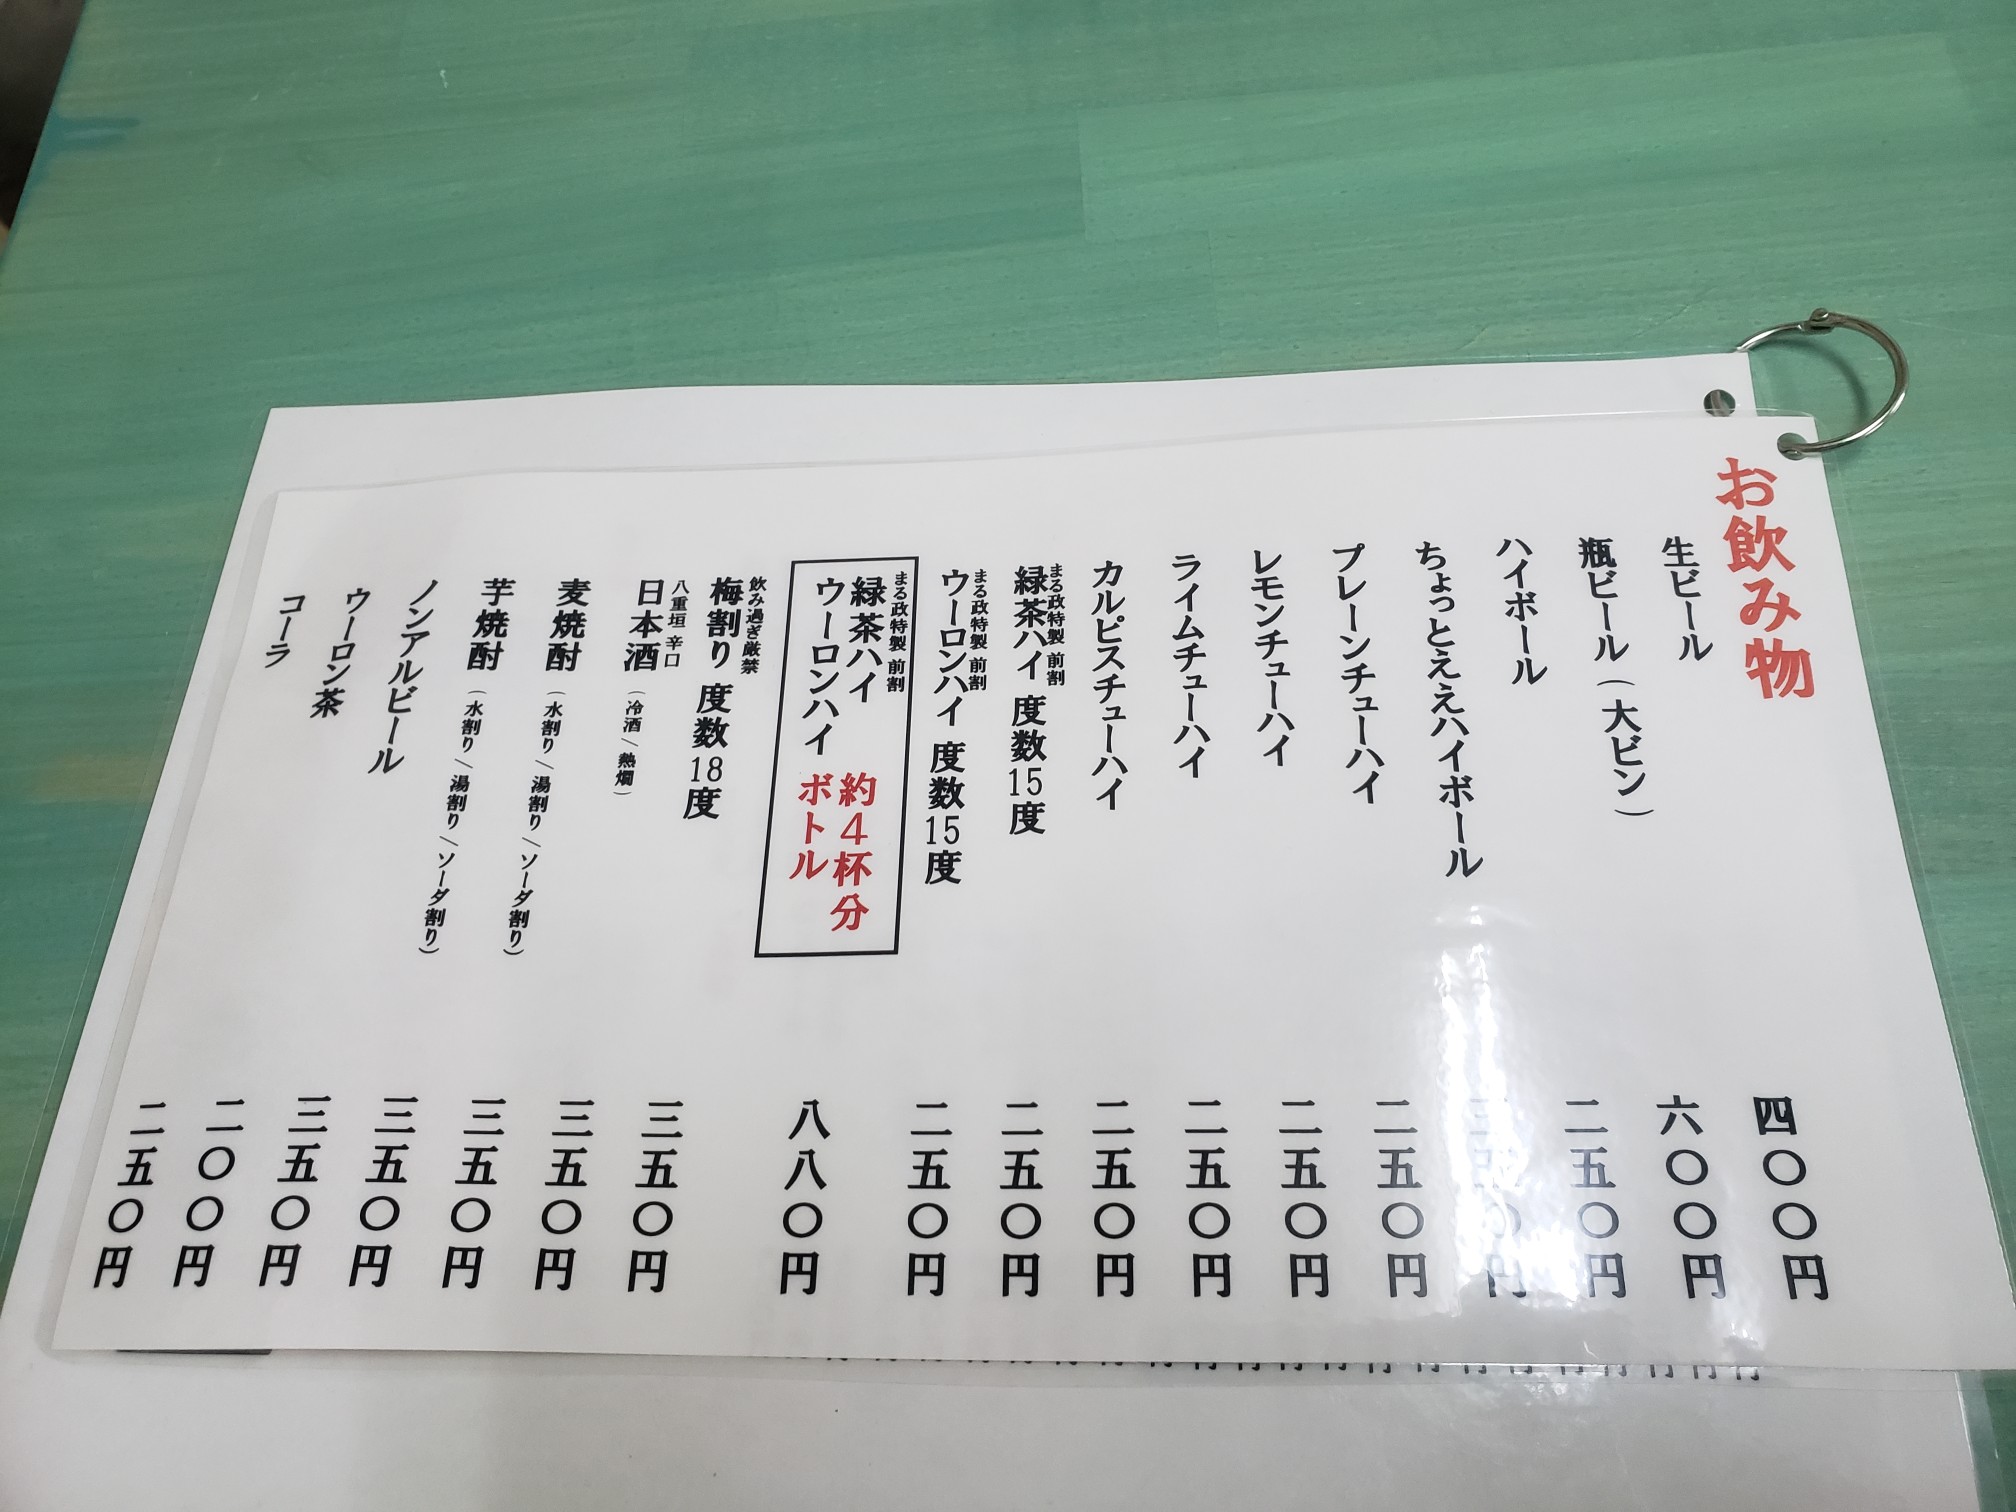 お飲み物
生ビール 四〇〇円
瓶ビール(大ビン) 六〇〇円
ハイボール 二五〇円
ちょっとええハイボール 三五〇円
プレーンチューハイ 二五〇円
レモンチューハイ 二五〇円
ライムチューハイ 二五〇円
カルピスチューハイ 二五〇円
まる政特製 前割
緑茶ハイ 度数15度 二五〇円
まる政特製 前割
ウーロンハイ 度数15度 二五〇円
まる政特製 前割
緑茶ハイ 約4杯分
ウーロンハイ ボトル 八八〇円
飲み過ぎ厳禁
梅割り 度数18度 三五〇円
八重垣 辛口
日本酒(冷酒/熱燗) 三五〇円
麦焼酎(水割り/湯割り/ソーダ割り) 三五〇円
芋焼酎(水割り/湯割り/ソーダ割り) 三五〇円
ノンアルビール 三五〇円
ウーロン茶 二〇〇円
コーラ 二五〇円